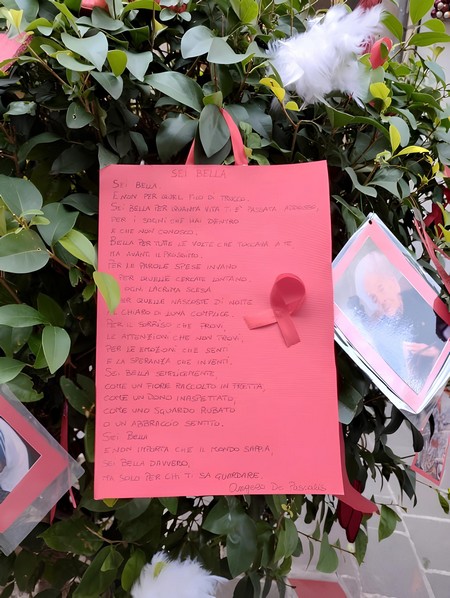 SEI BELLA
SEI BELLA
E NON PER QUEL FILO DI TRUCCO.
SEI BELLA PER QUANTA VITA TI È PASSATA ADDOSSO,
PER I SOGNI CHE HAI DENTRO
A CHE NON CONOSCO.
BELLA PER TUTTE LE VOLTE CHE TOCCAVA A TE
MA AVANTI IL PROSSIMO.
PER LE PAROLE SPESE INVANO
E PER QUELLE CERCATE LONTANO.
PER OGNI LACRIMA SCESA
E PER QUELLE NASCOSTE DI NOTTE
CHIARO DI LUNA COMPLICE.
PER IL SORRISO CHE PROVI,
LE ATTENZIONI CHE NON TROVI,
PER LE EMOZIONI CHE SENTI
E LA SPERANZA CHE INVENTI.
SEI BELLA SEMPLICEMENTE,
COME UN FIORE RACCOLTO IN FRETTA,
COME UN DONO INASPETTATO,
COME UNO SGUARDO RUBATO
O UN ABBRACCIO SENTITO.
SEI BELLA
E NON IMPORTA CHE IL MONDO SAPPIA,
SEI BELLA DAVVERO,
MA SOLO PER CHI TI SA GUARDARE.
De Pascalis